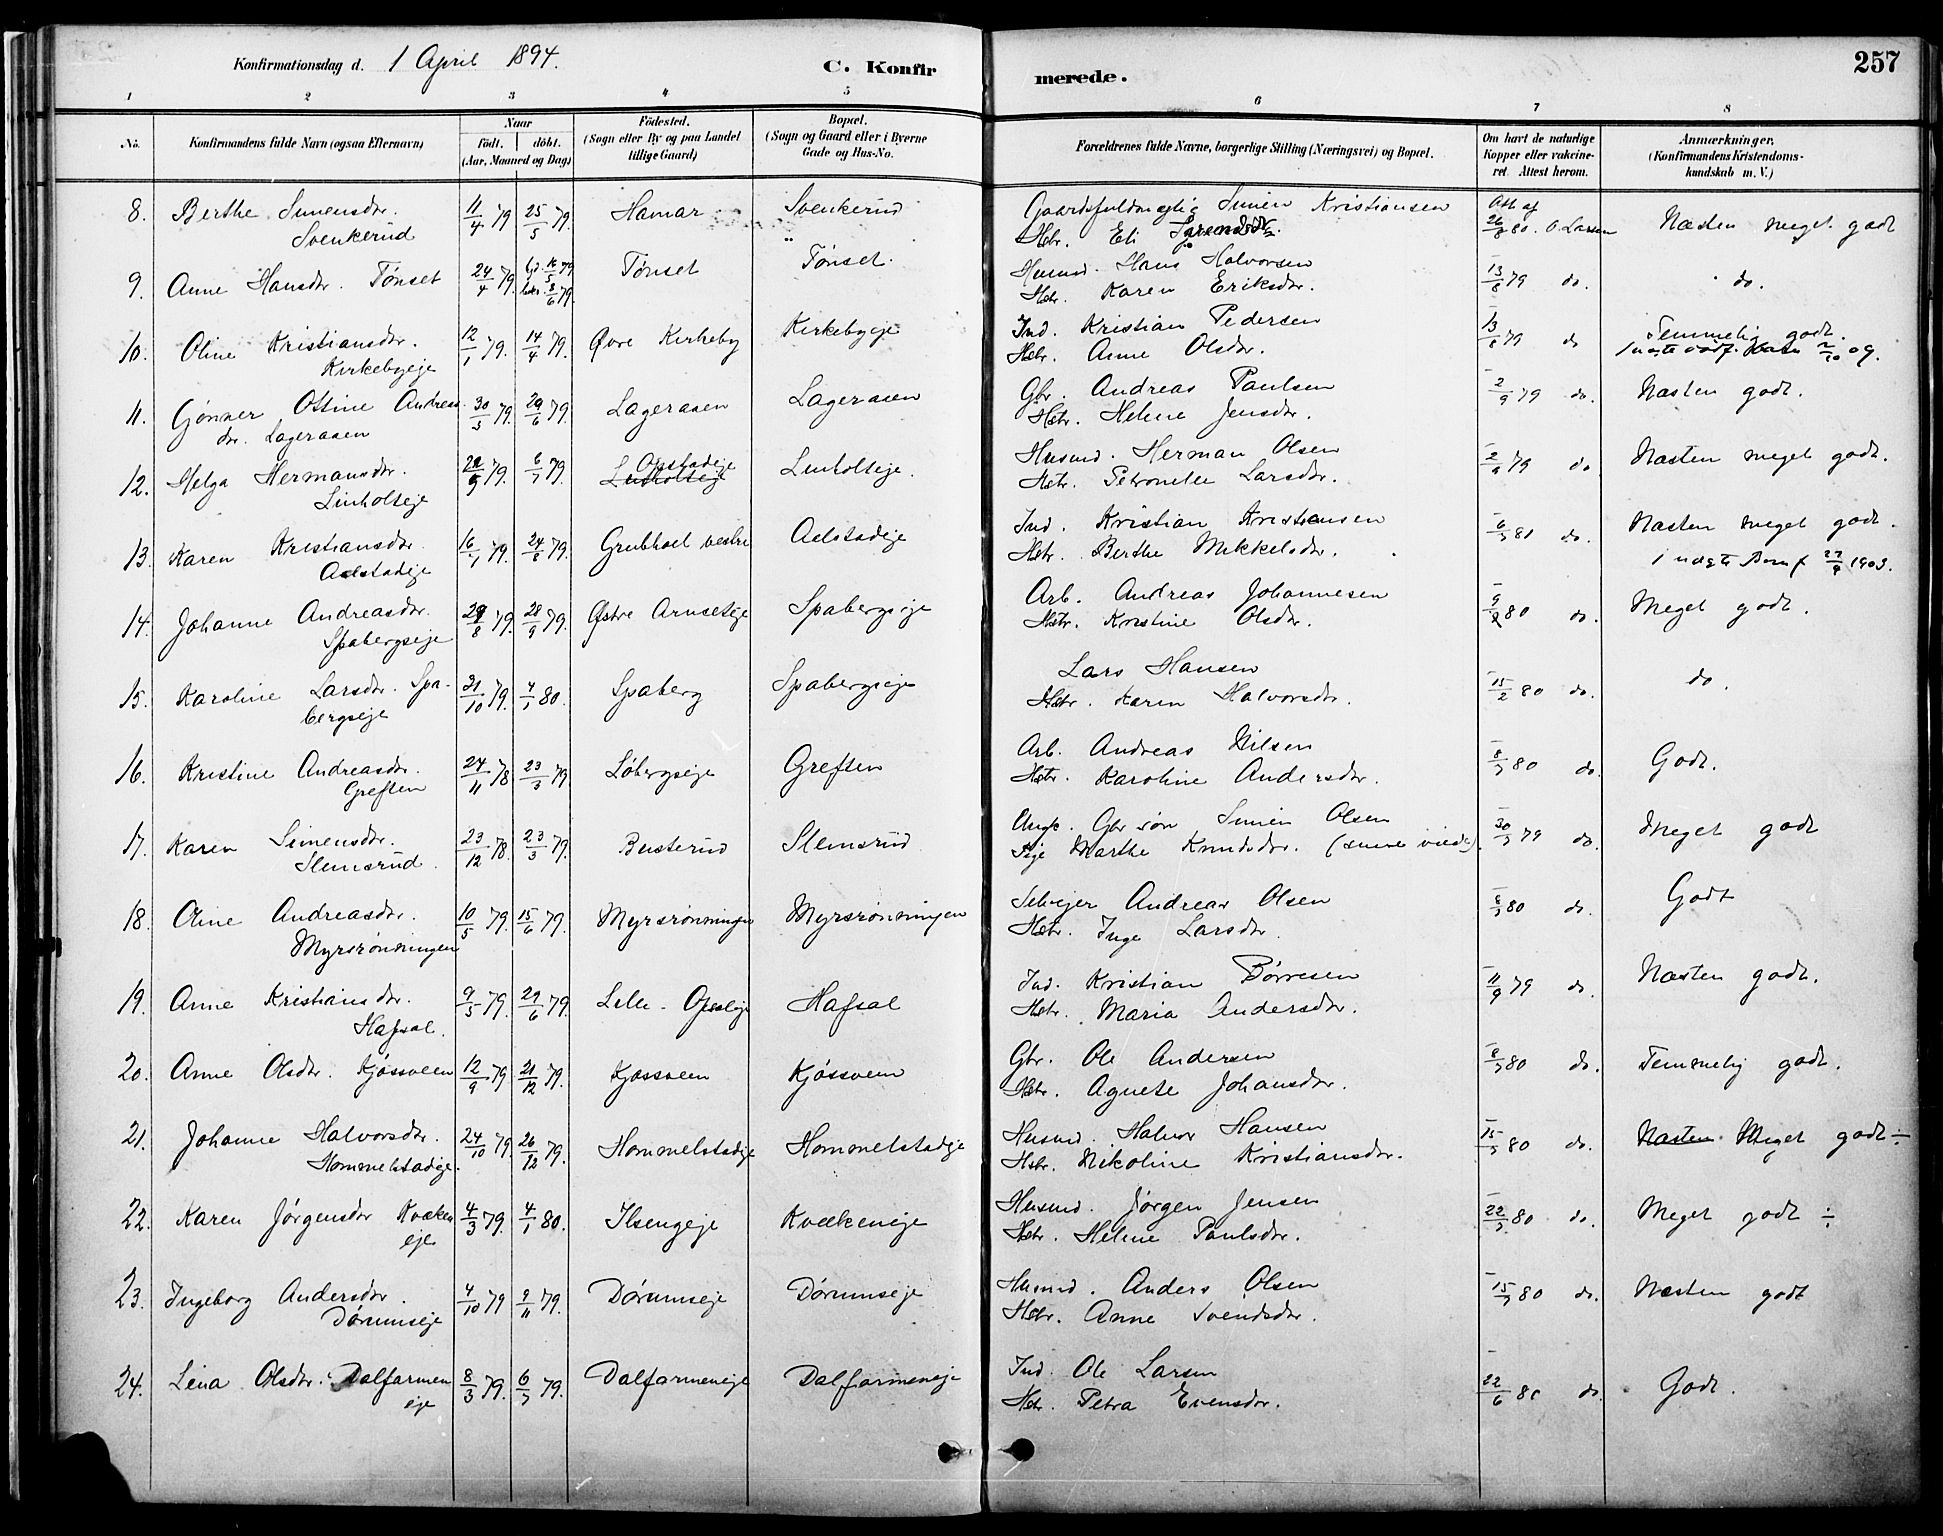 257
Konfirmationsdag d. 1 April 1894.
C. Konfirmerede.
1 2 3 4 5 6 7 8
No.
Konfirmandens fulde Navn (ogsaa Efternavn)
Naar
födt. döbt.
(Aar, Maaned og Dag)
Födested.
(Sogn eller By og paa Landet
tillige Gaard)
Bopæl.
(Sogn og Gaard eller i Byerne
Gade og Hus-No.
Forældrenes fulde Navne, borgerlige Stilling (Næringsvei) og Bopæl.
Om havt de naturlige
Kopper eller vakcine-
ret. Attest herom.
Anmærkninger.
(Konfirmandens Kristendoms-
kundskab m. V.)
8. Berthe Simensdr. 11/4 79 25/5 79. Hamar Svenkerud Gaardsfuldmægtig Simen Kristiansen Att af
Svenkerud Hstr. Eli 26/8 80. O. Larsen Næsten meget godt
9. Anne Hansdr. Tönset 24/4 79. Tönset Tönset. Husmd. Hans Halvorsen
Hstr. Karen Eriksdr. 13/8 79 do. do.
10. Oline Kristiansdr. 12/1 79. 14/4 79. Övre Kirkeby Kirkebyeje Ind. Kristian Pedersen
Kirkebyeje Hstr. Anne Olsdr. 13/8 79 do Temmelig godt.
11. Gjönner Ottine Andreas- 30/3 79. 29/6 79. Lageraaen Lageraaen Gbr. Andreas Paulsen
dr. Lageraaen Hstr. Helene Jensdr. 2/9 79 do. Næsten godt.
12. Helga Hermansdr. 79. 6/7 79. Opstadeje Linholteje. Husmd. Herman Olsen
Linholteje Linholteje Hstr. Petronelle Larsdr. 2/9 79 do Næsten meget godt.
13. Karen Kristiansdr. 16/7 79. 24/8 79. Grubhoel vestre Aelstadeje Ind. Kristian Kristiansen
Aelstadeje Hstr. Berthe Mikkelsdr. do. Næsten meget godt.
1903.
14. Johanne Andreasdr. 29/8 79. 28/9 79. Östre Arnseteje Spabergseje Arb. Andreas Johannesen
Spabergseje Hstr. Kristine Olsdr. 80 do. Meget godt.
15. Karoline Larsdr. Spa- 31/10 79. 4/1 80. Spaberg Spabergseje Lars Hansen
bergseje Hstr. Karen Halvorsdr. 15/2 80 do. do.
16. Kristine Andreasdr. 24/11 78 23/3 79 Löbergseje Greften Arb. Andreas Nilsen
Greften Hstr. Karoline Andersdr. 8/3 80 do. Godt.
17. Karen Simensdr. 23/12 78. 23/3 79. Busterud Slemsrud Ungk. Gbr sön Simen Olsen
Slemsrud. Pige Marthe Knudsdr. 79 do. Meget godt
18. Oline Andreasdr. 10/5 79. 15/6 79. Myrsrönningen Myrsrönningen Selvejer Andreas Olsen
Myrsrönningen Hstr. Inge Larsdr. 80 do. Godt
19. Anne Kristiansdr. 9/5 79. 29/6 79. Lille-Opsaleje Hafsal Ind. Kristian Börresen
Hafsal. Hstr. Maria Andersdr. 11/9 79 do. Næsten godt.
20. Anne Olsdr. Kjösveen 12/9 79 21/12 79. Kjössveen Kjössveen Gbr. Ole Andersen
Hstr. Agnete Johansdr. 8/3 80 do. Temmelig godt.
21. Johanne Halvorsdr. 24/10 79. 26/12 79. Hommelstadeje Hommelstadeje Husmd. Halvor Hansen
Hommelstadeje. Hstr. Nikoline Kristiansdr. 15/3 80 do. Næsten Meget godt ÷
22. Karen Jörgensdr Kvæken 4/3 79. 4/1 80. Ilsengeje Kvækeneje Husmd. Jörgen Jensen
eje Hstr. Helene Paulsdr. 22/3 80 do. Meget godt ÷
23. Ingeborg Andersdr. 4/10 79 9/11 79. Dörumseje Dörumseje Husmd. Anders Olsen
Dörumseje Hstr. Anne Svendsdr. 15/3 80 do. Næsten godt
24. Lina Olsdr. Dalfarmen 8/3 79. 6/7 79. Dalfarmeneje Dalfarmeneje Ind. Ole Larsen
eje Hstr. Petra Evensdr. 22/6 do. Godt.